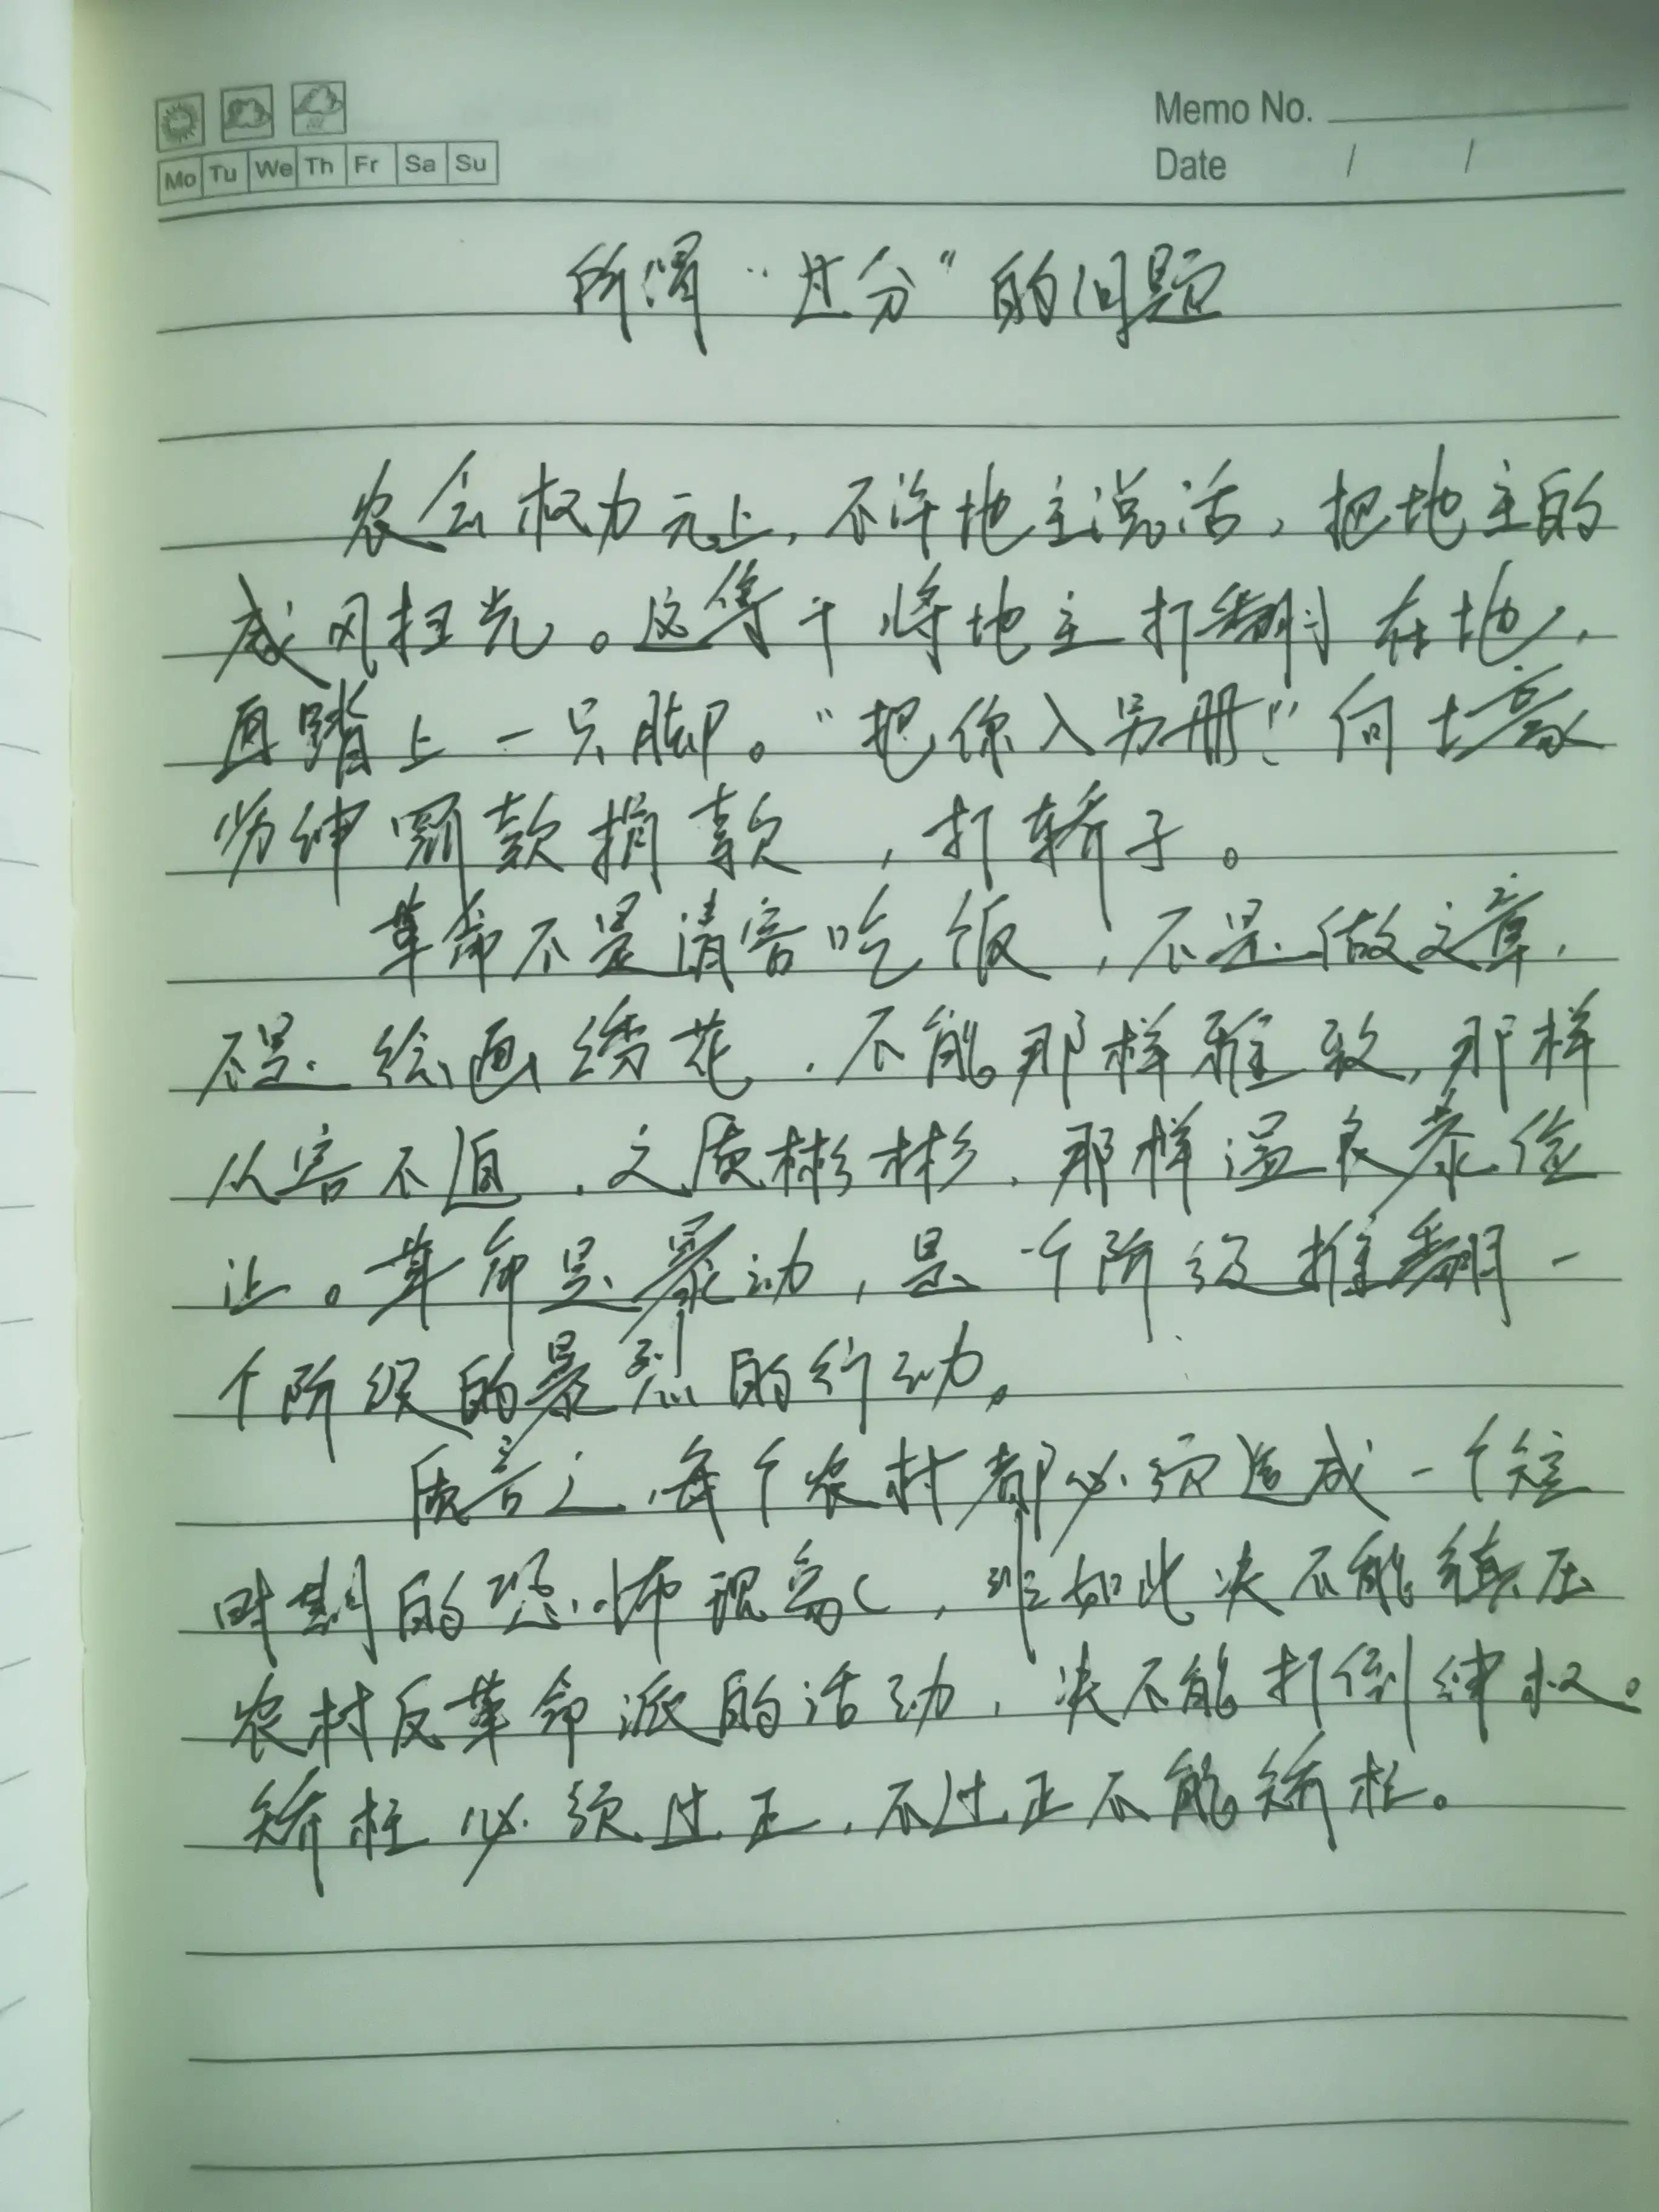 Memo No.
Mo Tu We Th Fr Sa Su
Date / /
所谓“过分”的问题
农会权力无上，不许地主说话，把地主的
威风扫光。这等于将地主打翻在地，
再踏上一只脚。“把你入另册！”向土豪
劣绅罚款捐款，打轿子。
革命不是请客吃饭，不是做文章，
不是绘画绣花，不能那样雅致，那样
从容不迫，文质彬彬，那样温良恭俭
让。革命是暴动，是一个阶级推翻一
个阶级的暴烈的行动。
质言之，每个农村都必须造成一个短
时期的恐怖现象，非如此决不能镇压
农村反革命派的活动，决不能打倒绅权。
矫枉必须过正，不过正不能矫枉。